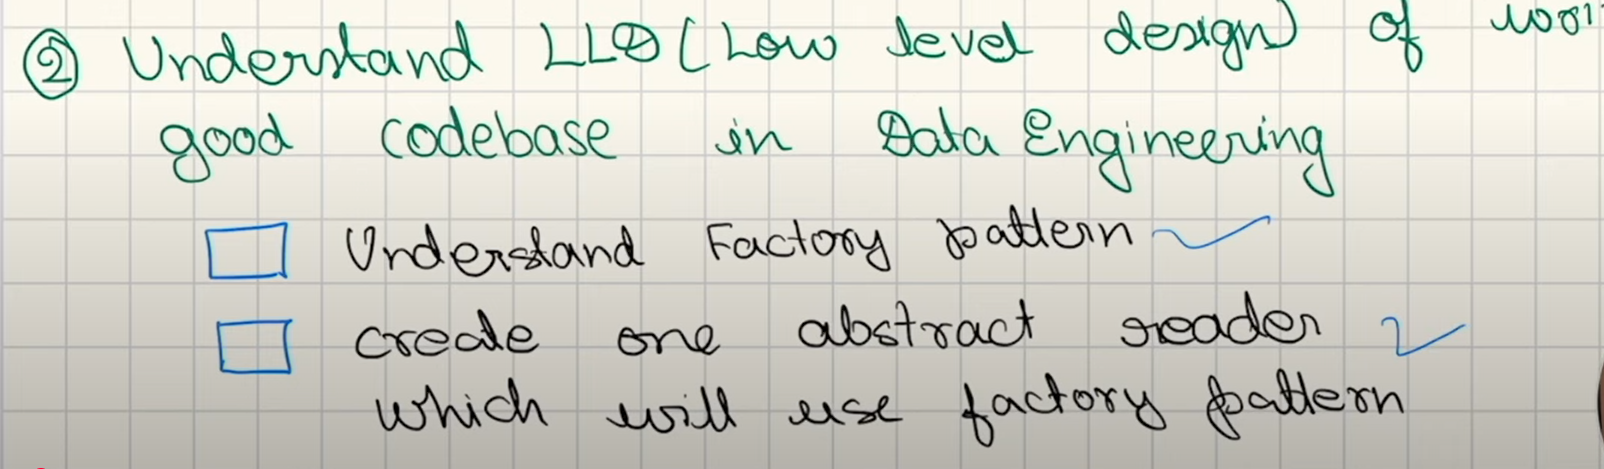 ② Understand LLD (Low level design) of
good codebase in Data Engineering
Understand Factory pattern
create one abstract reader
which will use factory pattern